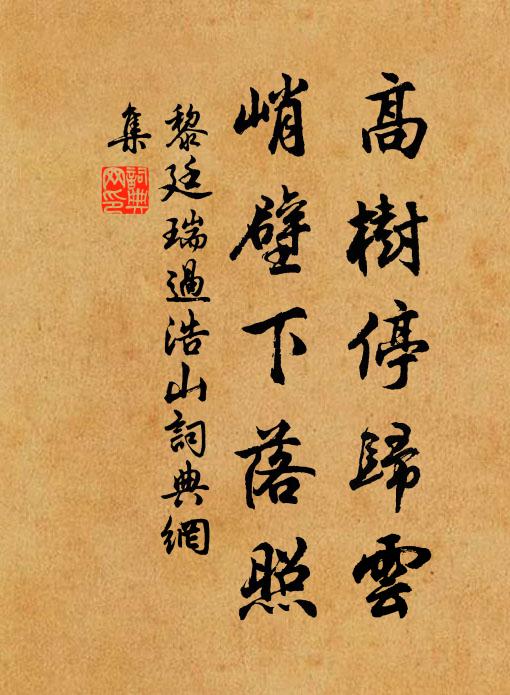 高樹停歸雲
峭壁下落照
黎廷瑞過浩山詞典網
集
詞典網印